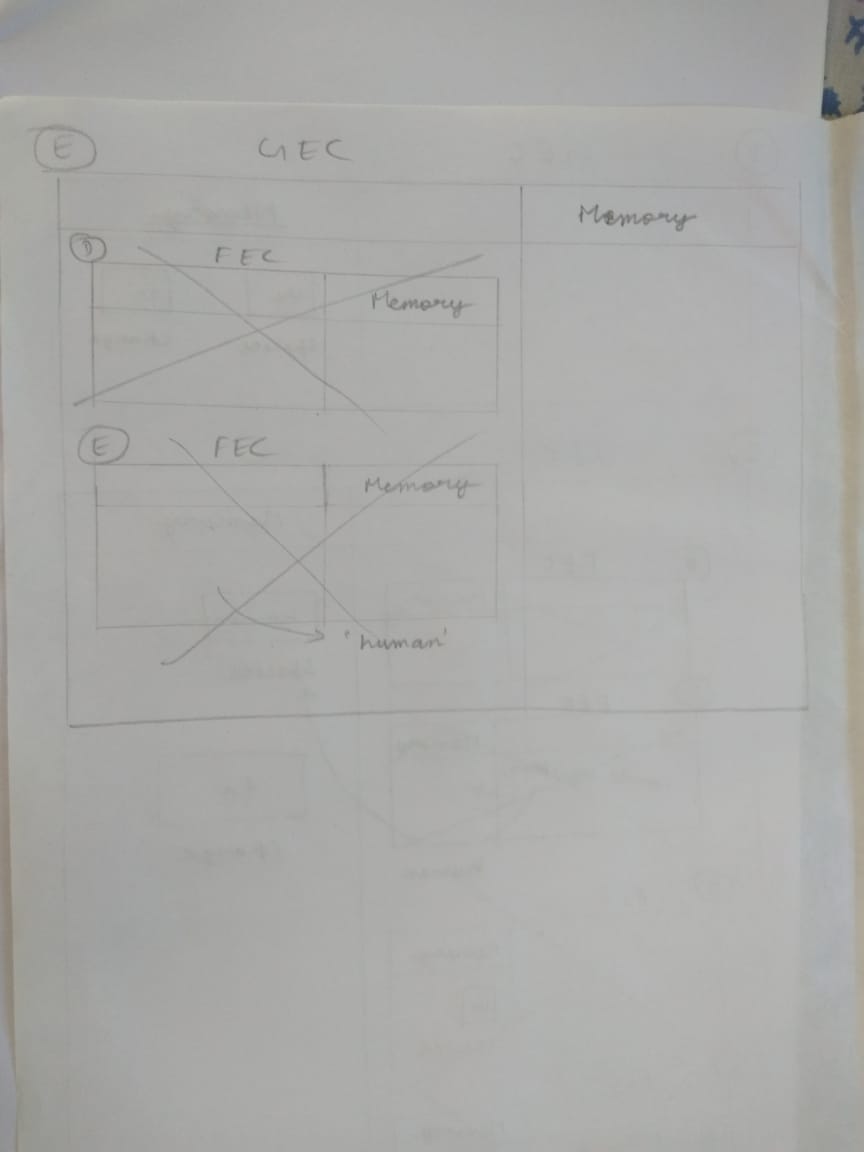 E GEC
Memory
D FEC
Memory
E FEC
Memory
'human'